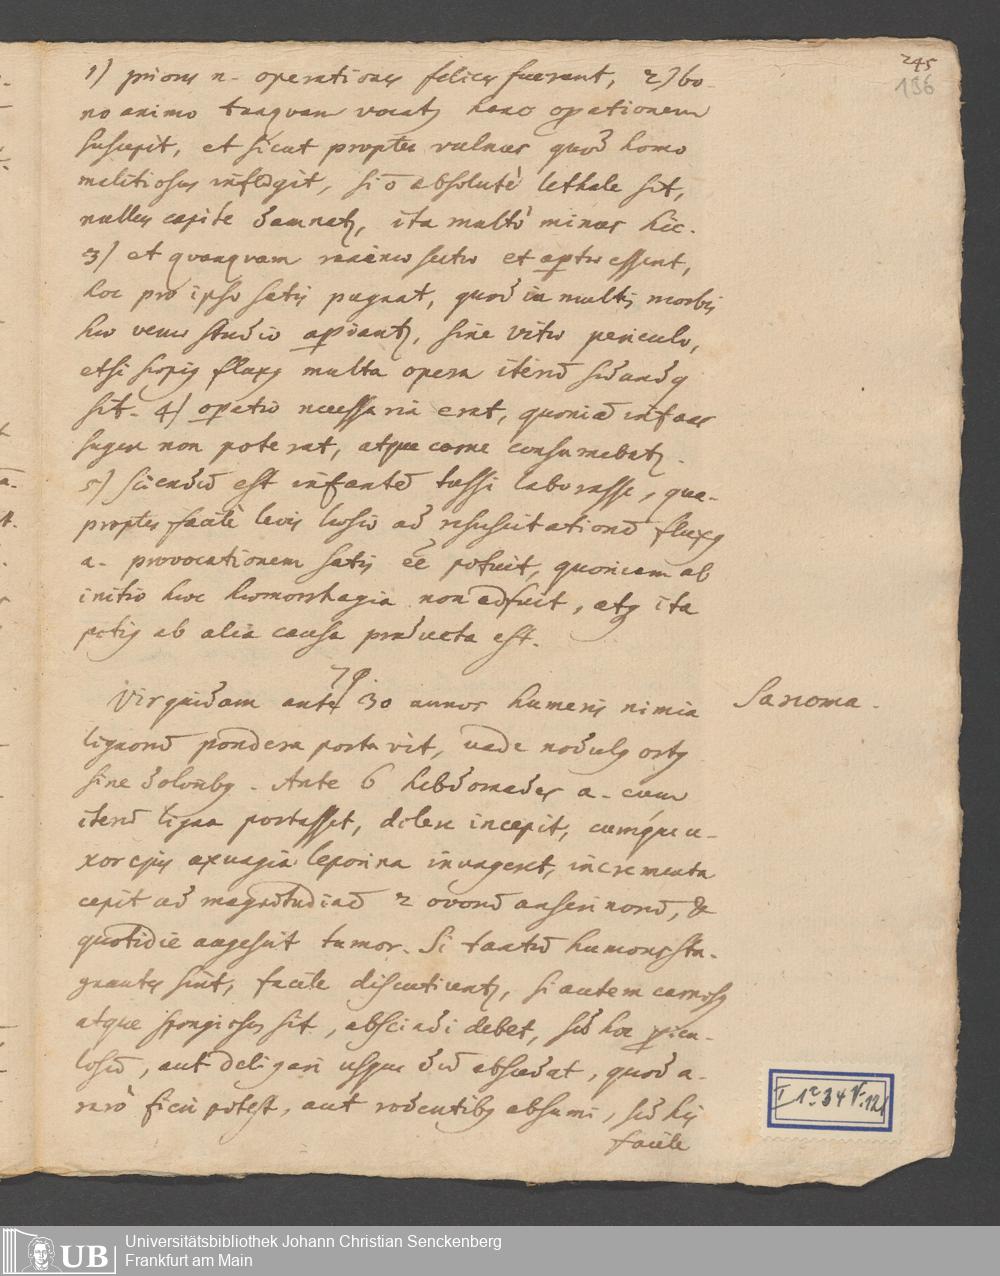 245
136
1) priores n. operationes felices fuerunt, 2) bo-
no animo tanquam vocatq hanc opationem
suscepit, et sicut propter vulnus quod homo
malitiosus infligit, si o absolutè lethale sit,
nullus capite damnatq, ita multò minus hic.
3) et quanquam ranino sectio et aptio essent,
hoc pro ipso satis pugnat, quod in multis morbis
hoc venio studio apiantq, sine vitio periculo,
etsi fluxq multa opera iterū sidandq
sit. 4) opatio necessaria erat, quoniā infans
sugere non poterat, atque carne consumebatq.
5) sciendū est infantē tussi laborasse, qua-
propter facilè levis lusio ad resuscitationē fluxq
a. provocationem satis eē potuit, quoniam ab
initio hæc hæmorrhagia non adfuit, atq ita
potiq ab alia causa producta est.
Vir quidam ante 30 annos humeris nimia
lignorū pondera portavit, unde nodulq ortq
sine doloribq. Ante 6 hebdomades a. cum
iterū ligna portasset, dolere incepit, cumque u-
xor ejus axungia leporina inungeret, incrementa
cepit ad magnitudinē 2 ovorū anserinorū, &
quotidie augescit tumor. Si tantū humores sta-
gnantes sint, facile discutiuntq, si autem carnosq
atque spongiosus sit, abscindi debet, sed hoc picu-
losū, aut deligari usque dū abscedat, quod a.
rarò fieri potest, aut rodentibq absumi, sed his
facile
Sarcoma.
I 1r 34 V. 121
UB
Universitätsbibliothek Johann Christian Senckenberg
Frankfurt am Main